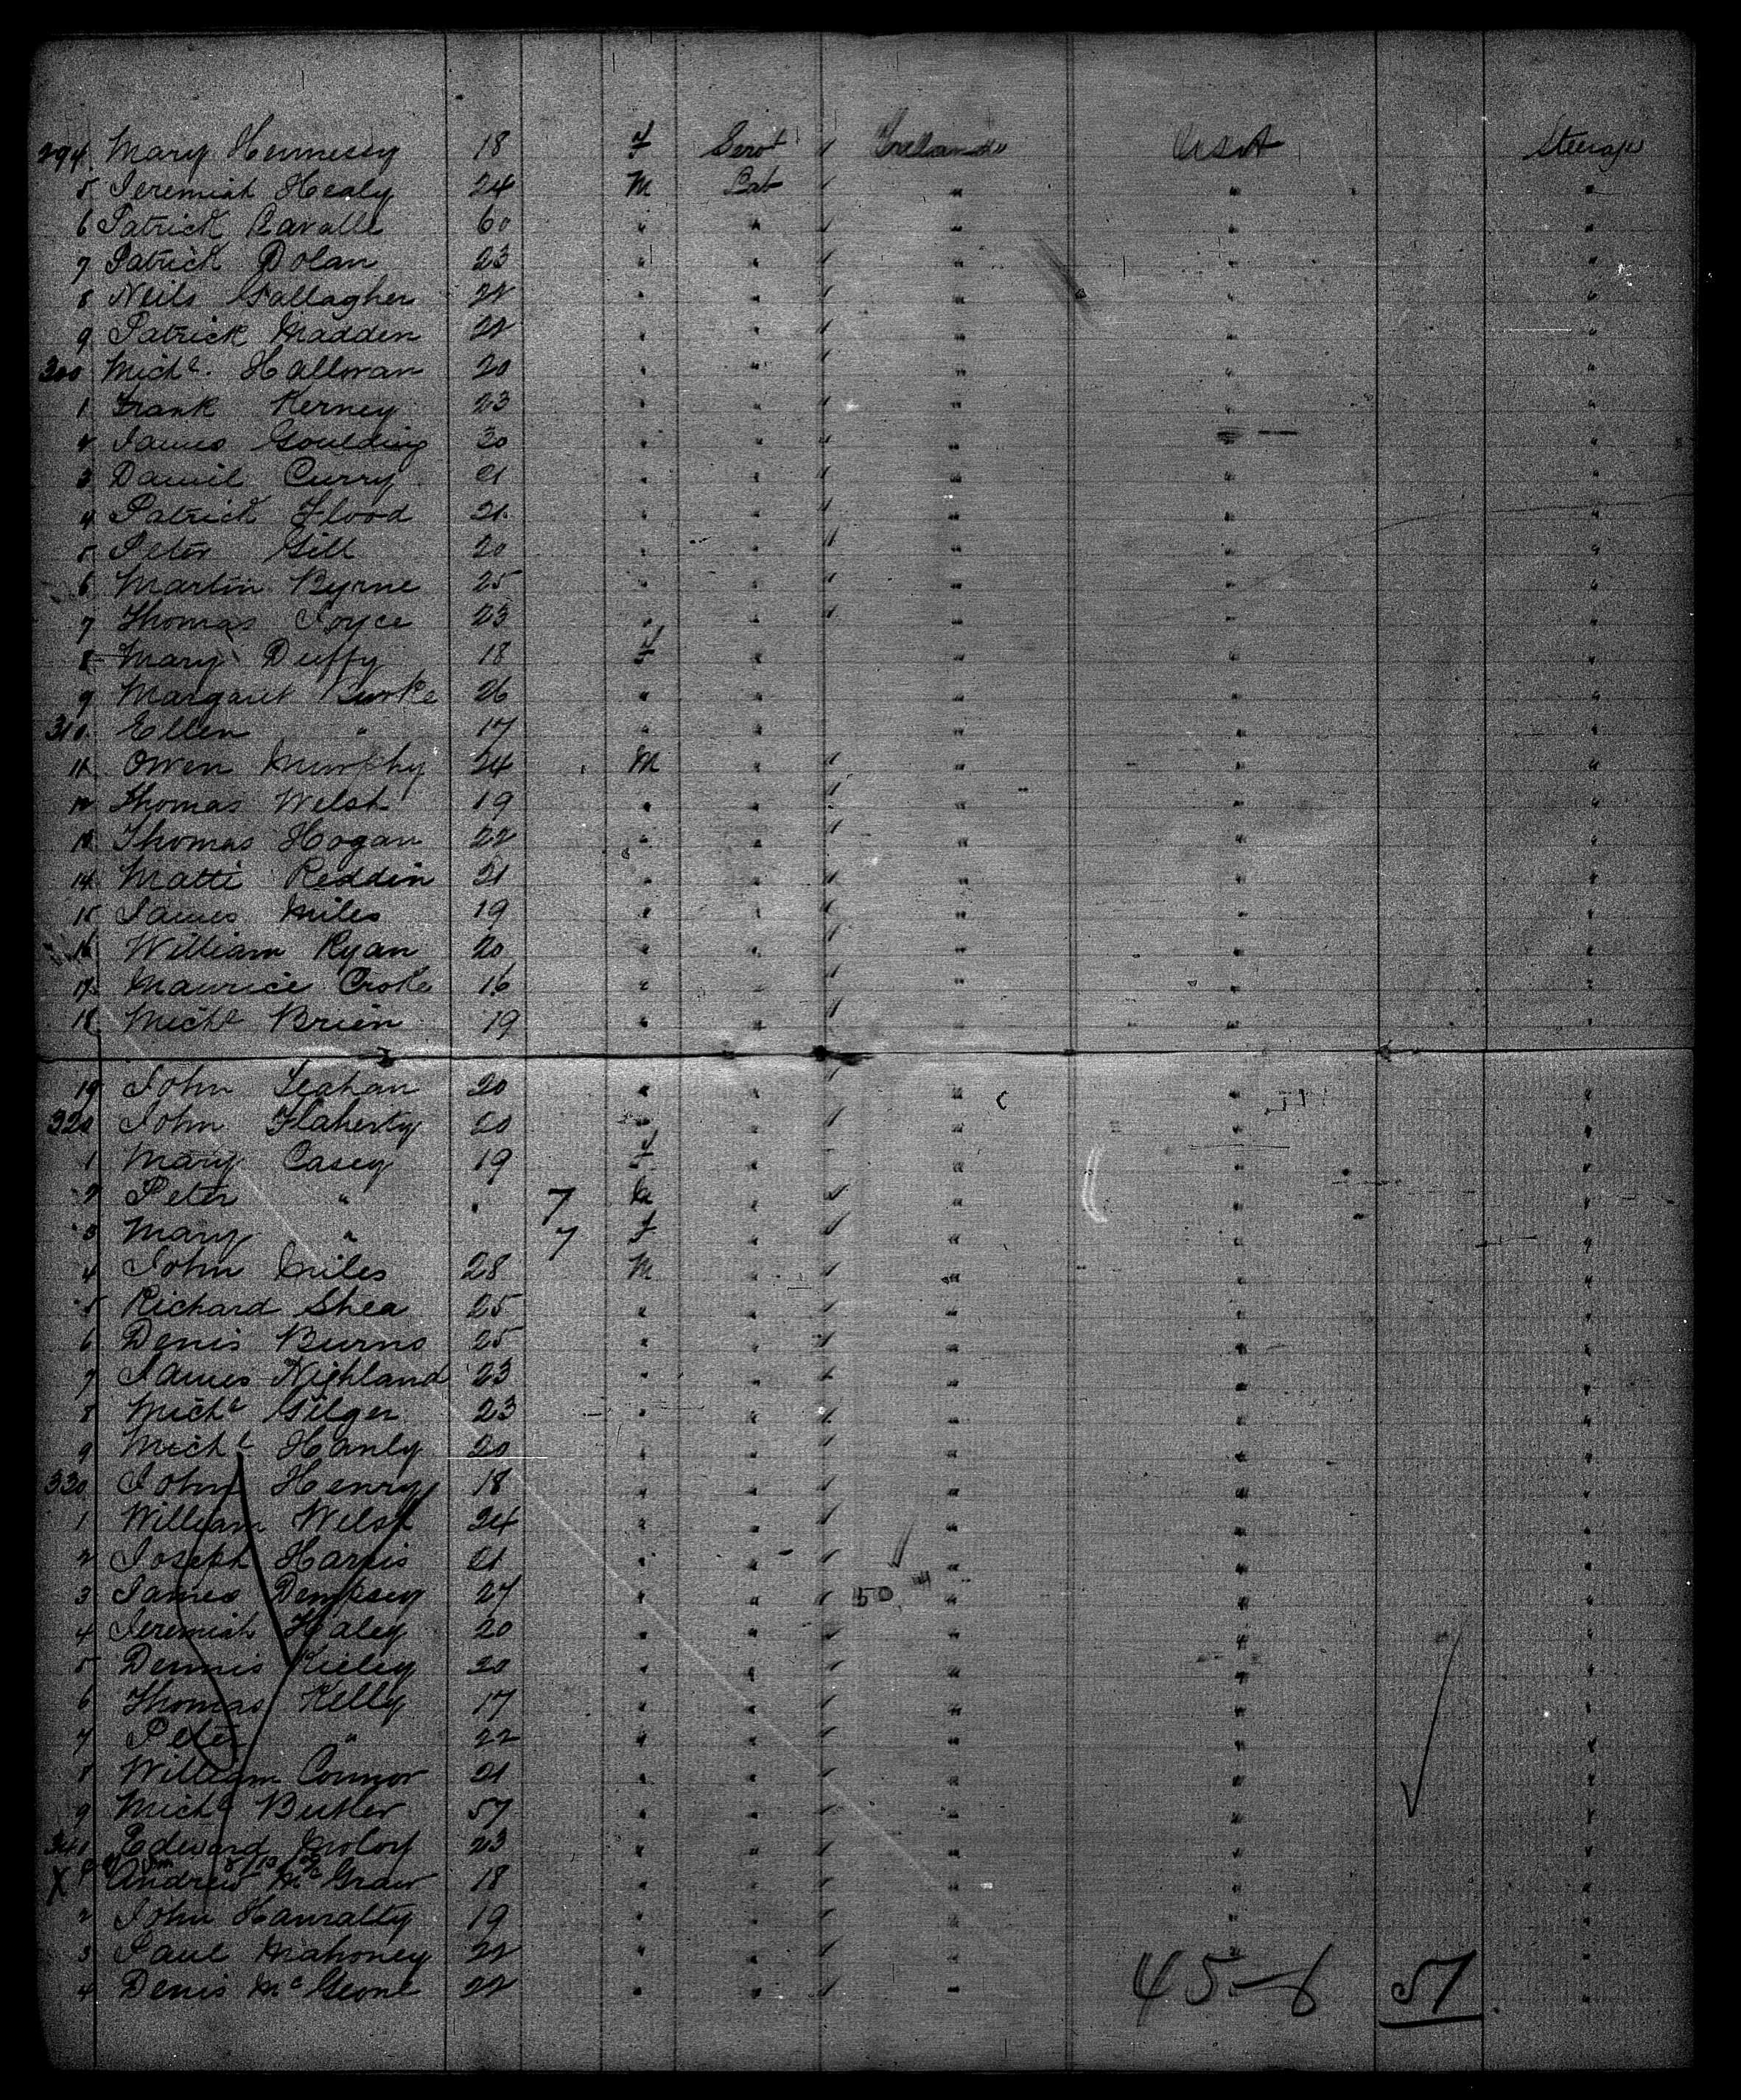 294 Mary Hennesey 18 f Servt " Ireland USA Steerage
5 Jeremiah Healy 24 M Lab " " " "
6 Patrick Lavalle 60 " " " " " "
7 Patrick Dolan 23 " " " " " "
8 Neils Gallagher 22 " " " " " "
9 Patrick Madden 22 " " " " " "
300 Michl. Halloran 20 " " " " " "
1 Frank Kerney 23 " " " " " "
2 James Goulding 30 " " " " " "
3 Daniel Curry 21 " " " " " "
4 Patrick Flood 21 " " " " " "
5 Peter Gill 20 " " " " " "
6 Martin Byrne 25 " " " " " "
7 Thomas Joyce 23 " " " " " "
8 Mary Duffy 18 f " " " "
9 Margaret Burke 26 " " " " "
310 Ellen " 17 " " " " "
11 Owen Murphy 24 M " " " " "
12 Thomas Welsh 19 " " " " " "
13 Thomas Hogan 22 " " " " " "
14 Matti Reddin 21 " " " " " "
15 James Miles 19 " " " " " "
16 William Ryan 20 " " " " " "
17 Maurice Croke 16 " " " " " "
18 Michl Brien 19 " " " " " "
19 John Leahan 20 " " " " " "
320 John Flaherty 20 " " " " " "
1 Mary Casey 19 f " " " "
2 Peter " " 7 M " " " " "
3 Mary " 7 f " " " " "
4 John Miles 28 M " " " " "
5 Richard Shea 25 " " " " " "
6 Denis Burns 25 " " " " " "
7 James Nighland 23 " " " " " "
8 Michl Gilger 23 " " " " " "
9 Michl Hanly 20 " " " " " "
330 John Henry 18 " " " " " "
1 William Welsh 24 " " " " " "
2 Joseph Harris 21 " " " " " "
3 James Dempsey 27 " " " 50 " " "
4 Jeremiah Haley 20 " " " " " "
5 Dennis Kieley 20 " " " " " "
6 Thomas Kelly 17 " " " " " "
7 Peter " 22 " " " " " "
8 William Connor 21 " " " " " "
9 Michl Butler 57 " " " " " "
340 Edward Moloy 23 " " " " " "
X 1 Andrew McGraw 18 " " " " " "
2 John Hanratty 19 " " " " " "
3 Paul Mahoney 22 " " " " " "
4 Denis McGeone 22 " " " " "
45-6 51